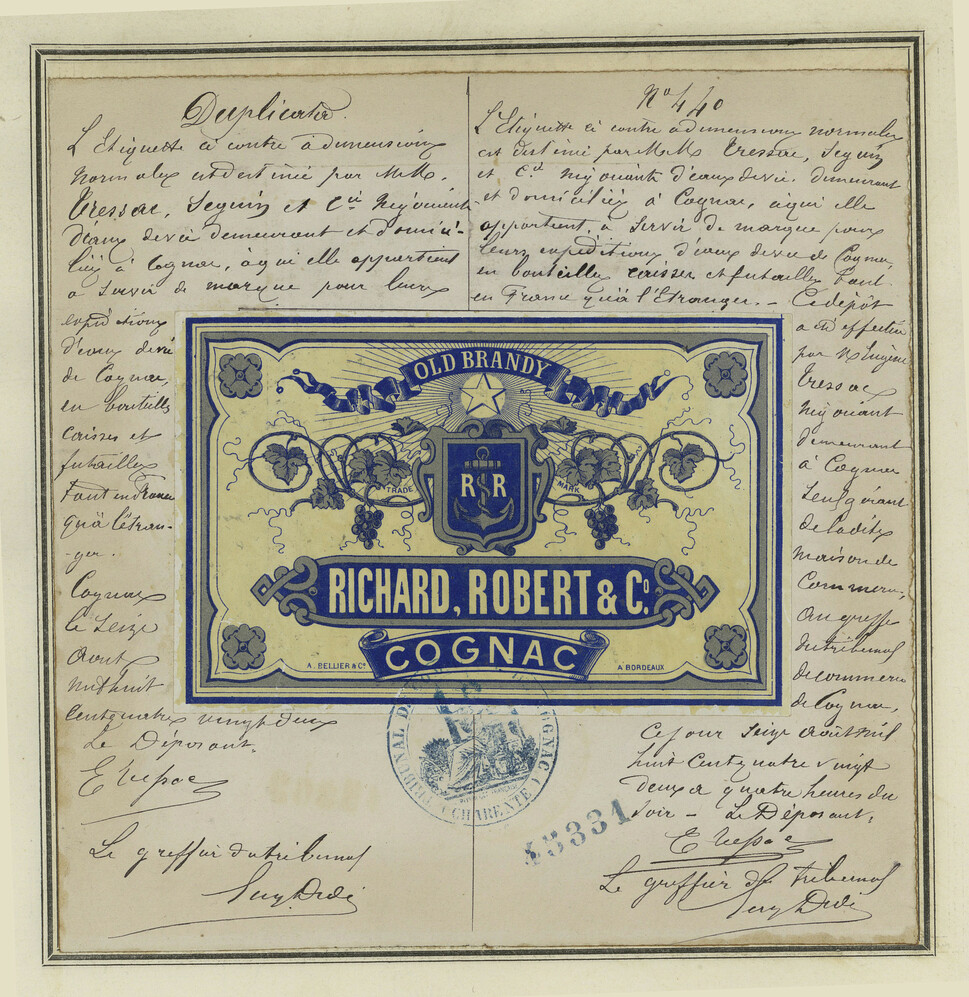 Duplicata.
L'Etiquette ci contre à dimensions
normales est destinée par M.M.
Tressac, Seguin et Cie Négociants
d'eaux de vie demeurant et domici-
liés à Cognac, à qui elle appartient
a servir de marque pour leurs
expéditions
d'eaux de vie
de Cognac,
en bouteilles
caisses et
futailles
tant en France
qu'à l'étran-
-ger.
Cognac
le seize
Aout
mil huit
cent quatre vingt deux
Le Déposant.
E Tressac
Le greffier du tribunal
No 440
L'Etiquette ci contre à dimensions normales
est destinée par M.M. Tressac, Seguin
et Cie Négociants d'eaux de vie demeurant
et domiciliés à Cognac, à qui elle
appartient, à servir de marque pour
leurs expéditions d'eaux de vie de Cognac,
en bouteilles caisses et futailles tant
en France qu'à l'Etranger. - Ce dépôt
a été effectué
par M. Eugène
Tressac
négociant
demeurant
à Cognac
seul gérant
de la dite
maison de
Commerce,
au greffe
du tribunal
de commerce
de Cognac,
ce jour seize août mil
huit cent quatre vingt
deux à quatre heures du
soir - Le Déposant,
E Tressac
Le greffier du tribunal
OLD BRANDY
TRADE
MARK
R R
RICHARD, ROBERT & Co.
COGNAC
A. BELLIER & Cie
A BORDEAUX
TRIBUNAL DE COGNAC (CHARENTE)
45331